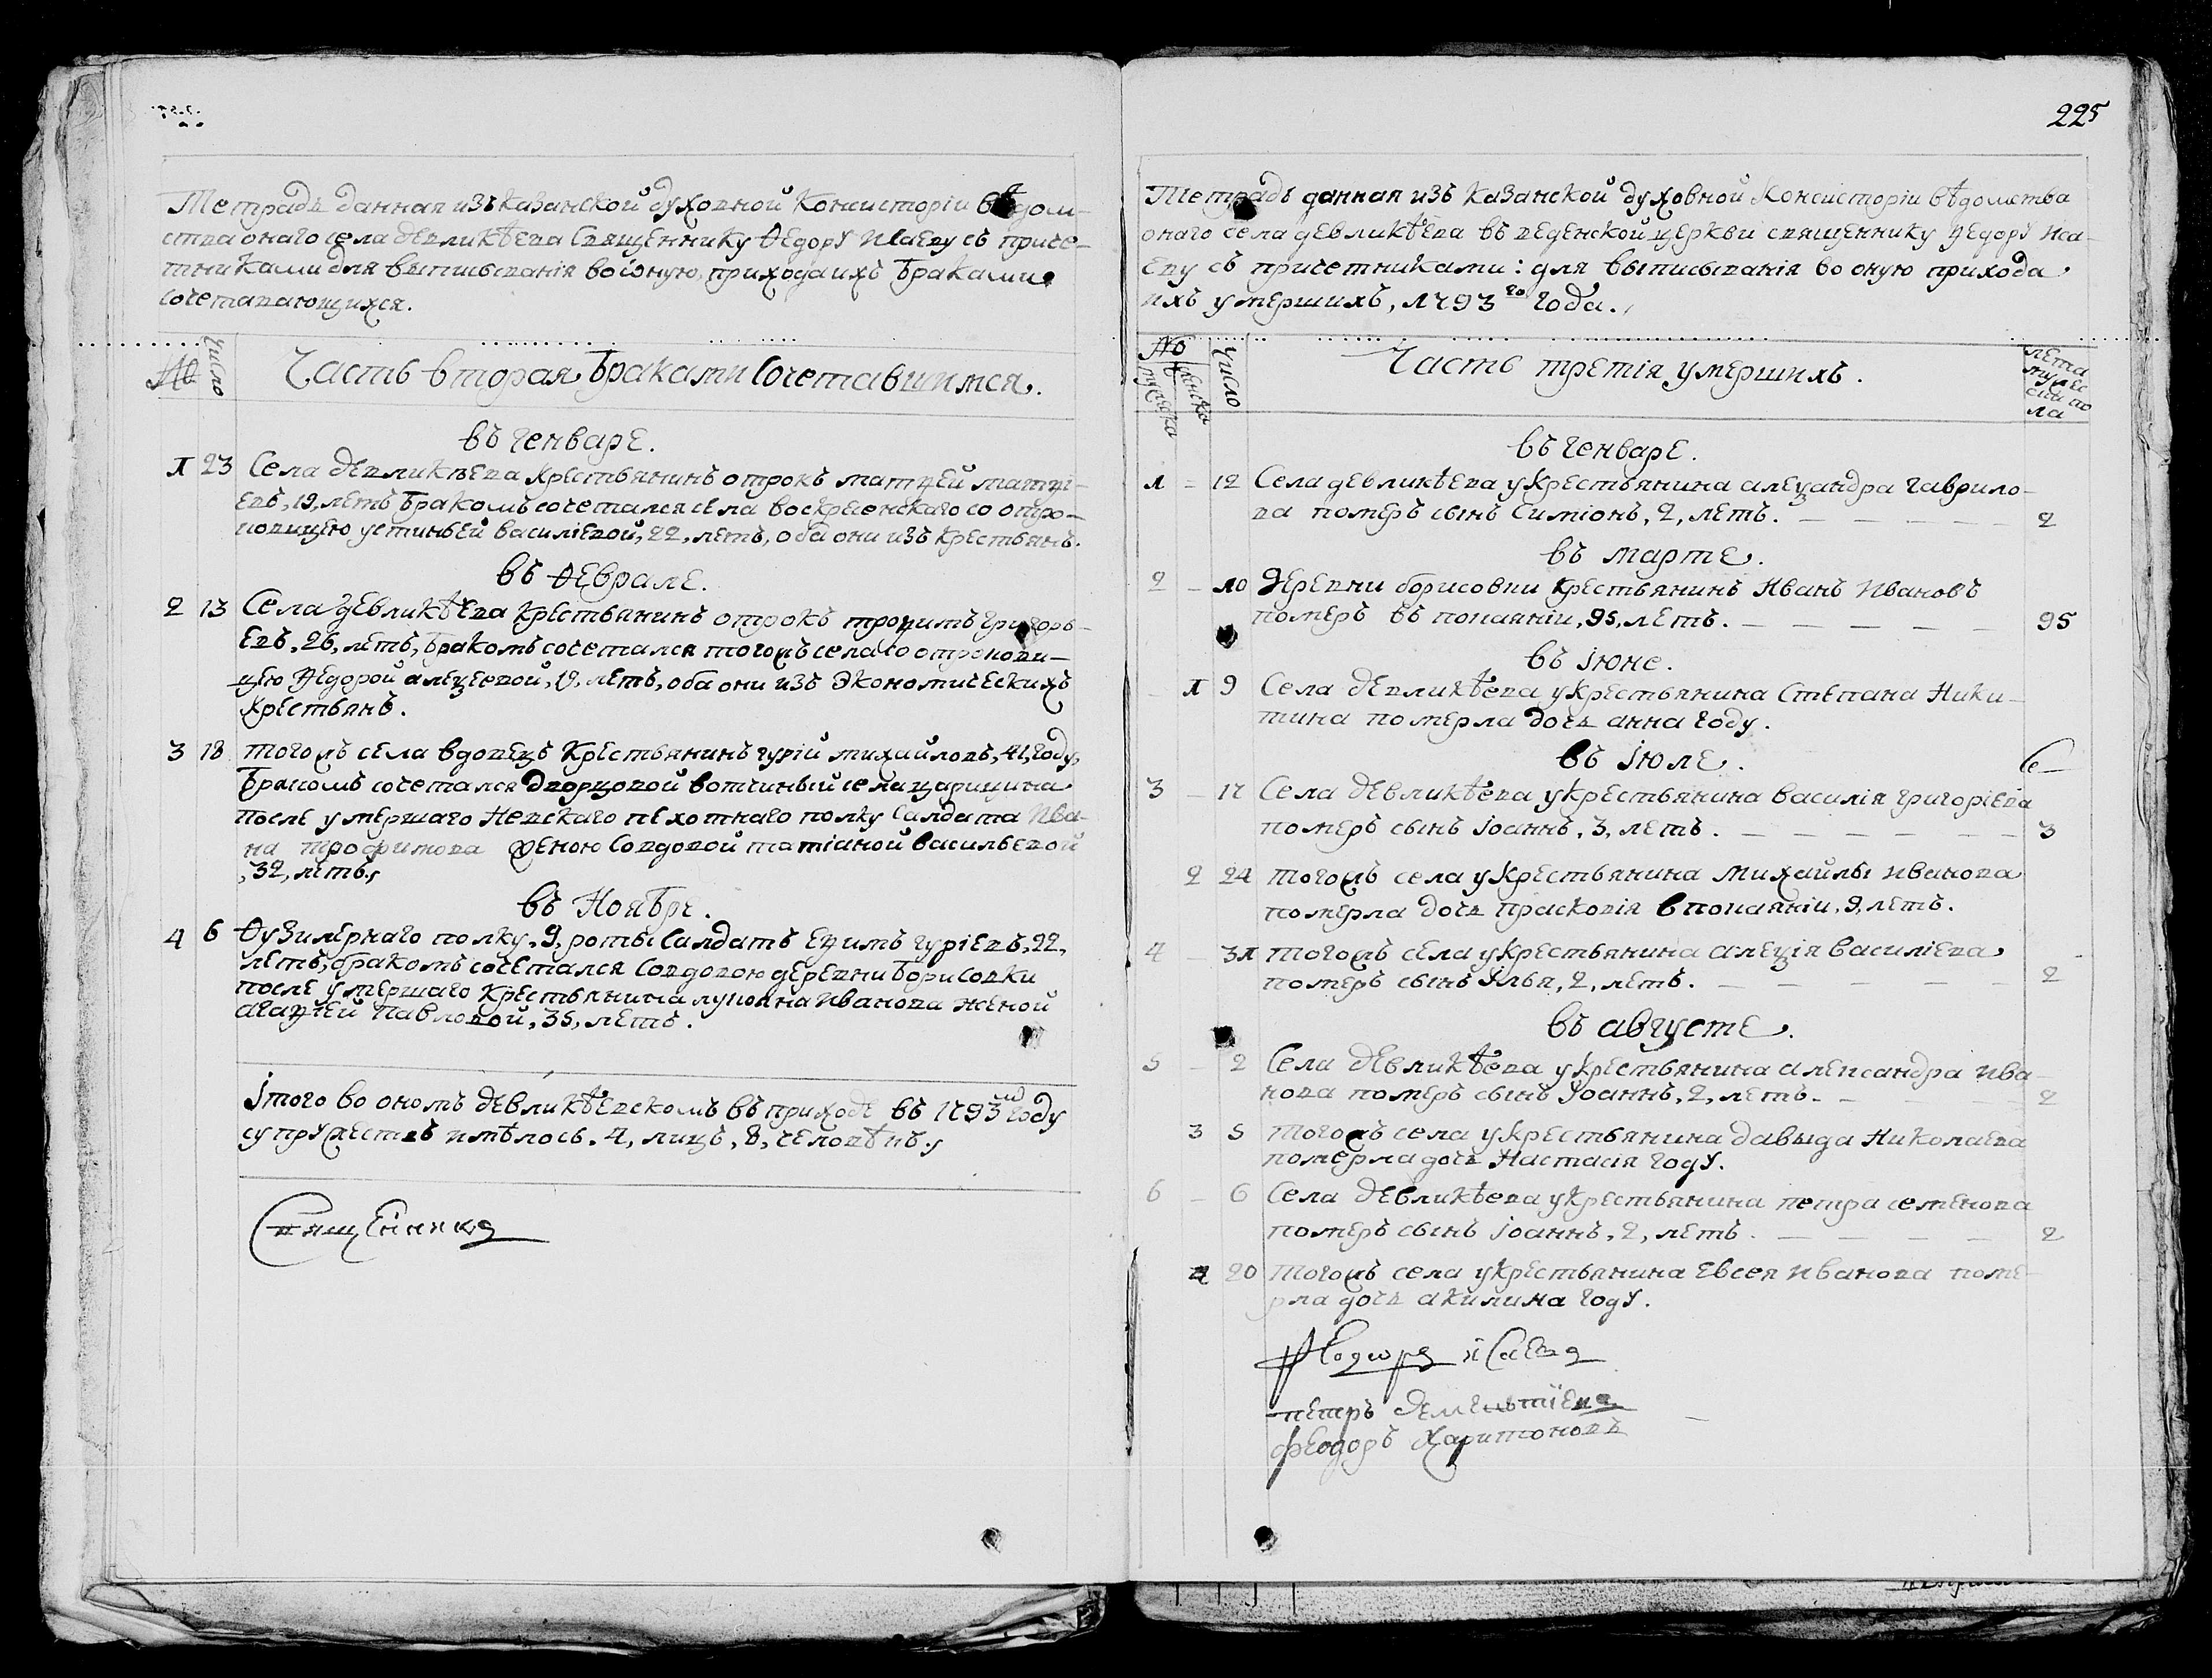 Тетрадь данная изъ казанской духовной консисторіи вѣдом-
ства онаго села девликѣева священнику Ѳедору Исаеву съ приче-
тниками для выписыванія во оную, прихода ихъ браками
сочетавающихся.
№ число Часть вторая браками сочетавшимся.
въ генваре.
1 23 Села девликѣева крестьянинъ отрокъ матѳей матѳі-
евъ, 19, летъ бракомъ сочетался села воскресенскаго со отро-
ковицею устиньей василіевой, 22, летъ, оба они изъ крестьянъ.
въ Ѳеврале.
2 13 Села девликѣева крестьянинъ отрокъ троѳимъ григорь-
евъ, 26, летъ, бракомъ сочетался тогожъ села со отрокови-
цею Ѳедорой алеѯеевой, 19, летъ, оба они изъ экономическихъ
крестьянъ.
3 18 тогожъ села вдовецъ крестьянинъ гурій михайловъ, 41, году,
бракомъ сочетался дворцовой вотчины села царицина
после умершаго Невскаго пехотнаго полку салдата Ива-
на трофимова женою совдовой татіаной васильевой
,32, летъ.
въ Ноябре.
4 6 Ѳузилернаго полку, 9, роты салдатъ еѳимъ гуріевъ, 22,
летъ, бракомъ сочетался совдовою деревни борисовки
после умершаго крестьянина лукояна Иванова женой
агаѳьей Павловой, 35, летъ.
Итого во ономъ девликѣевскомъ въ приходе въ 1793м году
супружествъ имѣлось, 4, лицъ, 8, человѣкъ.
Священникъ
225
Тетрадь данная изъ казанской духовной консисторіи вѣдомства
онаго села девликѣева въведенской церкви священнику Ѳедору Иса-
еву съ причетниками: для выписыванія во оную прихода
ихъ умершихъ, 1793го года.
№ мужеска женска число Часть третія умершихъ. лета мужеска пола
въ генваре.
1 - 12 Села девликѣева у крестьянина алеѯандра гаврило-
ва померъ сынъ Симіонъ, 2, летъ. 2
въ марте.
2 - 10 Деревни борисовки крестьянинъ Иванъ Ивановъ
померъ въ покаяніи, 95, летъ. 95
въ Іюне.
- 1 9 Села девликѣева у крестьянина Степана Ники-
тина померла дочь анна году.
въ Іюле.
3 - 17 Села девликѣева у крестьянина василія григоріева
померъ сынъ Іоаннъ, 3, летъ. 3
2 24 тогожъ села у крестьянина Михайлы Иванова
померла дочь прасковія в покаяніи, 9, летъ.
4 - 31 тогожъ села у крестьянина алеѯія василіева
померъ сынъ Илья, 2, летъ. 2
въ августе.
5 - 2 Села девликѣева у крестьянина александра Ива-
нова померъ сынъ Іоаннъ, 2, летъ. 2
3 5 тогожъ села у крестьянина давыда Николаева
померла дочь Настасія году.
6 - 6 Села девликѣева у крестьянина петра семенова
померъ сынъ Іоаннъ, 2, летъ. 2
4 20 тогожъ села у крестьянина Евсея Иванова поме-
рла дочь акилина году.
Ѳеодоръ Исаевъ
петръ Дементіевъ
феодоръ Харитоновъ